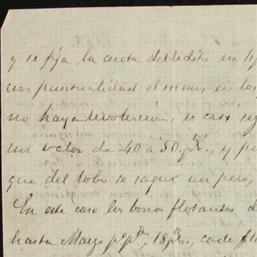 y se fija la cuota del rédito en
con puntualidad al menos en los
no haya devolucion, es casi
un valor de 40 á 50 p%., y
que del lobo se saque un pelo,
En este caso los bonos flotantes
hasta Marzo 18 p%., cada